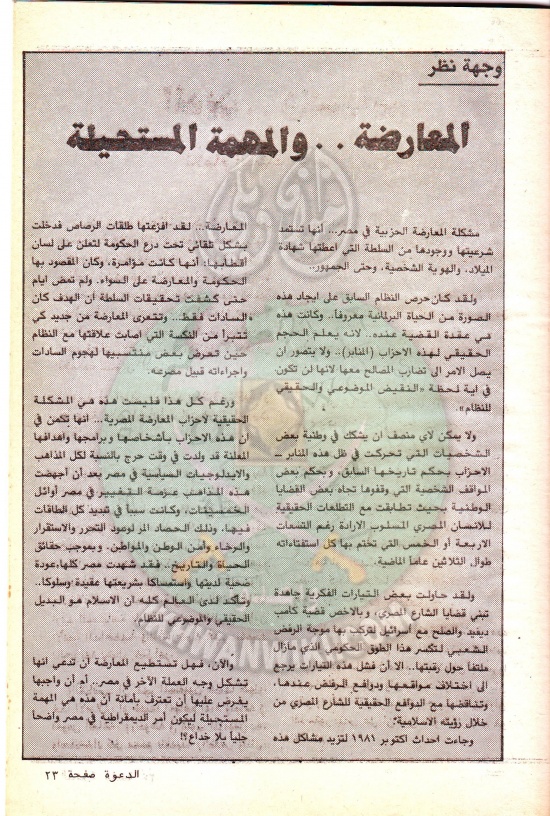 وجهة نظر
المعارضة . . والمهمة المستحيلة
مشكلة المعارضة الحزبية في مصر... أنها تستمد
شرعيتها ووجودها من السلطة التي اعطتها شهادة
الميلاد، والهوية الشخصية، وحتى الجمهور..
ولقد كان حرص النظام السابق على ايجاد هذه
الصورة من الحياة البرلمانية معروفاً.. وكانت هذه
هي عقدة القضية عنده.. لأنه يعلم الحجم
الحقيقي لهذه الاحزاب (المنابر).. ولا يتصور أن
يصل الامر الى تضارب المصالح معها لانها لن تكون
في اية لحظة «النقيض الموضوعي والحقيقي
للنظام».
ولا يمكن لاي منصف أن يشكك في وطنية بعض
الشخصيات التي تحركت في ظل هذه المنابر ــ
الاحزاب بحكم تاريخها السابق، وبحكم بعض
المواقف الشخصية التي وقفوها تجاه بعض القضايا
الوطنية بحيث تطابقت مع التطلعات الحقيقية
للانسان المصري المسلوب الارادة رغم التسعات
الاربعة أو الخمس التي تختم بها كل استفتاءاته
طوال الثلاثين عاماً الماضية.
ولقد حاولت بعض التيارات الفكرية جاهدة
تبني قضايا الشارع المصري، وبالاخص قضية كامب
ديفيد والصلح مع اسرائيل لتركب بها موجة الرفض
الشعبي لتكسر هذا الطوق الحكومي الذي مازال
ملتفاً حول رقبتها.. الا أن فشل هذه التيارات يرجع
الى اختلاف مواقعها ودوافع الرفض عندها،
وتناقضها مع الدوافع الحقيقية للشارع المصري من
خلال رؤيته الاسلامية؟
وجاءت احداث اكتوبر ١٩٨١ لتزيد مشاكل هذه
المعارضة... لقد افزعتها طلقات الرصاص فدخلت
بشكل تلقائي تحت درع الحكومة لتعلن على لسان
أقطابها: أنها كانت مؤامرة، وكان المقصود بها
الحكومة والمعارضة على السواء. ولم تمض ايام
حتى كشفت تحقيقات السلطة أن الهدف كان
«السادات فقط».. وتتعرى المعارضة من جديد كي
تتبرأ من النكسة التي اصابت علاقتها مع النظام
حين تعرض بعض منتسبيها لهجوم السادات
واجراءاته قبيل مصرعه.
ورغم كل هذا فليست هذه هي المشكلة
الحقيقية لأحزاب المعارضة المصرية... أنها تكمن في
أن هذه الاحزاب بأشخاصها وبرامجها واهدافها
المعلنة قد ولدت في وقت حرج بالنسبة لكل المذاهب
والايدلوجيات السياسية في مصر بعد أن أجهضت
هذه المذاهب عزمة التغيير في مصر أوائل
الخمسينات، وكانت سبباً في تبديد كل الطاقات
فيها، وذلك الحصاد المر لوعود التحرر والاستقرار
والرخاء وأمن الوطن والمواطن، وبموجب حقائق
الحياة والتاريخ.. فقد شهدت مصر كلها،عودة
ضحية لدينها واستمساكا بشريعتها عقيدة وسلوكا..
وتأكد لدى العالم كله أن الاسلام هو البديل
الحقيقي والموضوعي للنظام.
والآن، فهل تستطيع المعارضة أن تدعي انها
تشكل وجه العملة الآخر في مصر.. أم أن واجبها
يفرض عليها أن تعترف بأمانة أن هذه هي المهمة
المستحيلة ليكون أمر الديمقراطية في مصر واضحا
جلياً بلا خداع؟!
الدعوة صفحة ٢٣